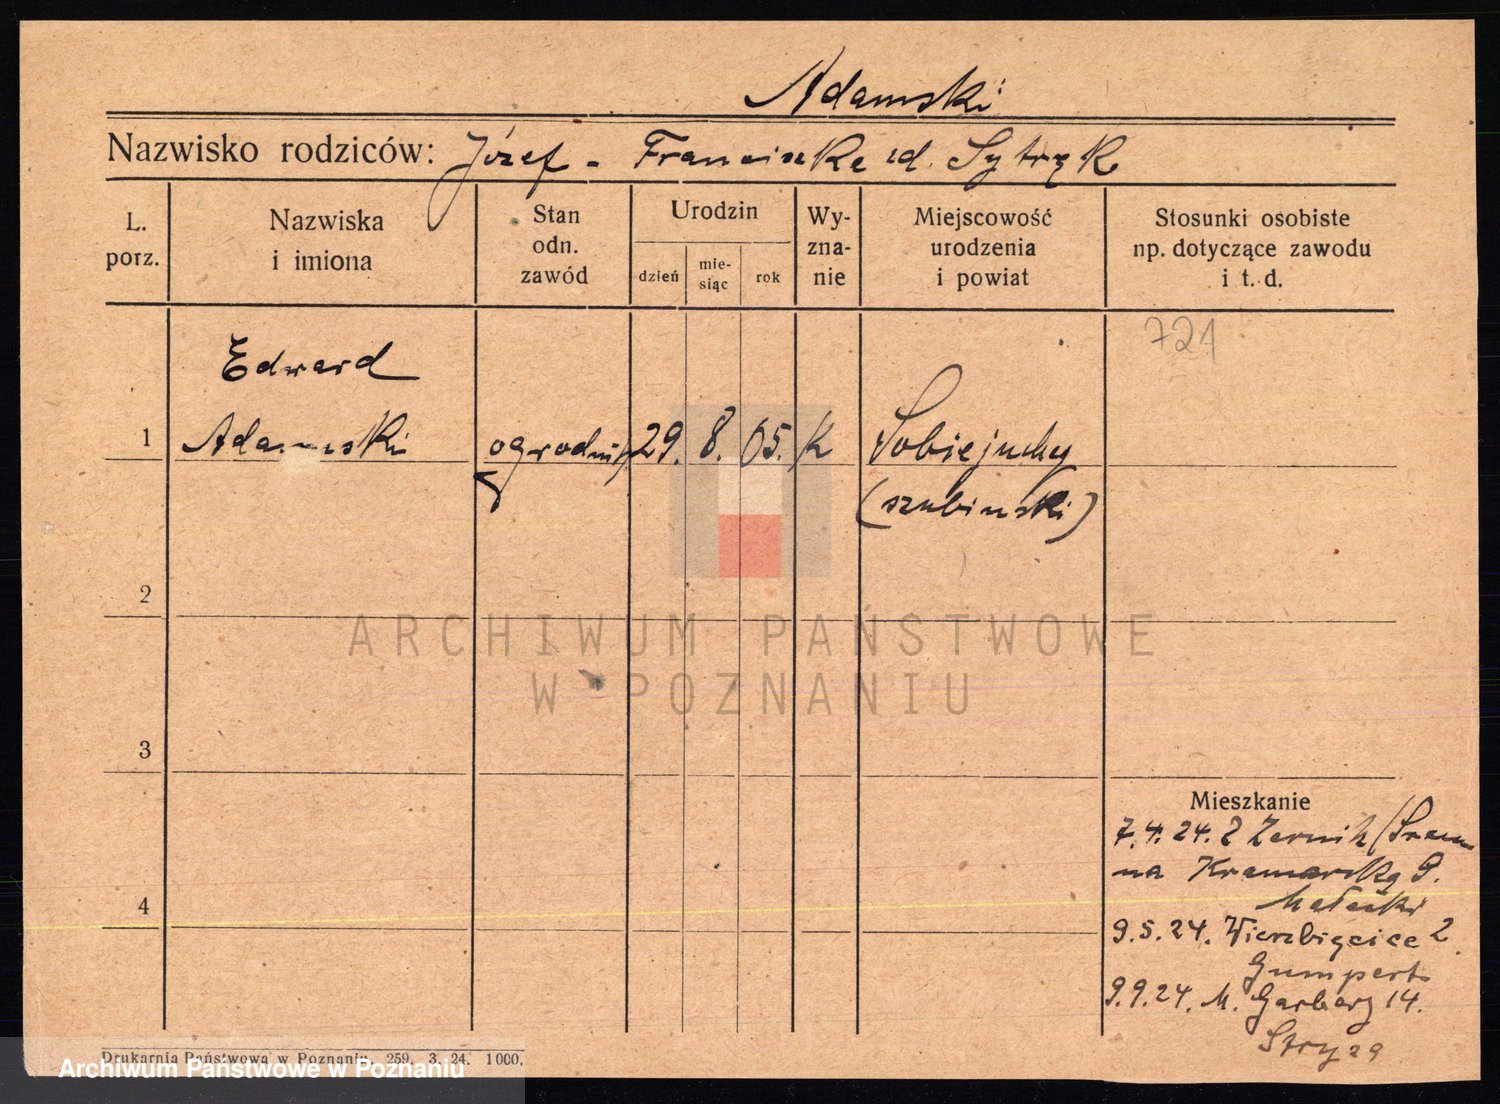 Adamski
Nazwisko rodziców: Józef - Franciszka zd. Sytrzk
L. porz.
Nazwiska i imiona
Stan odn. zawód
Urodzin
dzień
mie- siąc
rok
Wy- zna- nie
Miejscowość urodzenia i powiat
Stosunki osobiste np. dotyczące zawodu i t. d.
721
Edward
1 Adamski ogrodnik 29. 8. 05. K Sobiejuchy
(szubinski)
2
ARCHIWUM PAŃSTWOWE
W POZNANIU
3
Mieszkanie
7.4.24. Z Żernik
na Kramarska 9.
4
Małecki
9.5.24. Wierzbięcice 2
Gumpert
9.9.24. M. Garbary 14.
Drukarnia Państwowa w Poznaniu. 259. 3. 24. 1000.
Archiwum Państwowe w Poznaniu